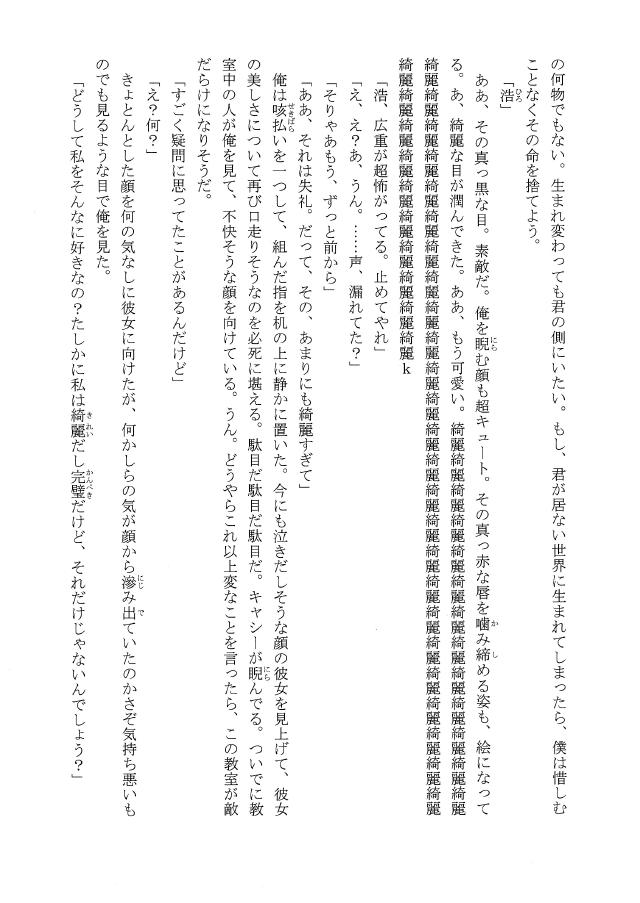 の何物でもない。生まれ変わっても君の側にいたい。もし、君が居ない世界に生まれてしまったら、僕は惜しむ
ことなくその命を捨てよう。
ひろ
「浩」
にら か し
ああ、その真っ黒な目。素敵だ。俺を睨む顔も超キュート。その真っ赤な唇を噛み締める姿も、絵になって
る。あ、綺麗な目が潤んできた。ああ、もう可愛い。綺麗綺麗綺麗綺麗綺麗綺麗綺麗綺麗綺麗綺麗綺麗綺麗綺麗
綺麗綺麗綺麗綺麗綺麗綺麗綺麗綺麗綺麗綺麗綺麗綺麗綺麗綺麗綺麗綺麗綺麗綺麗綺麗綺麗綺麗綺麗綺麗綺麗綺麗
綺麗綺麗綺麗綺麗綺麗綺麗綺麗綺麗綺麗綺麗k
「浩、広重が超怖がってる。止めてやれ」
「え、え？あ、うん。……声、漏れてた？」
「そりゃあもう、ずっと前から」
「ああ、それは失礼。だって、その、あまりにも綺麗すぎて」
せきばら
俺は咳払いを一つして、組んだ指を机の上に静かに置いた。今にも泣きだしそうな顔の彼女を見上げて、彼女
にら
の美しさについて再び口走りそうなのを必死に堪える。駄目だ駄目だ駄目だ。キャシーが睨んでる。ついでに教
室中の人が俺を見て、不快そうな顔を向けている。うん。どうやらこれ以上変なことを言ったら、この教室が敵
だらけになりそうだ。
「すごく疑問に思ってたことがあるんだけど」
「え？何？」
にじ で
きょとんとした顔を何の気なしに彼女に向けたが、何かしらの気が顔から滲み出ていたのかさぞ気持ち悪いも
のでも見るような目で俺を見た。
きれい かんぺき
「どうして私をそんなに好きなの？たしかに私は綺麗だし完璧だけど、それだけじゃないんでしょう？」